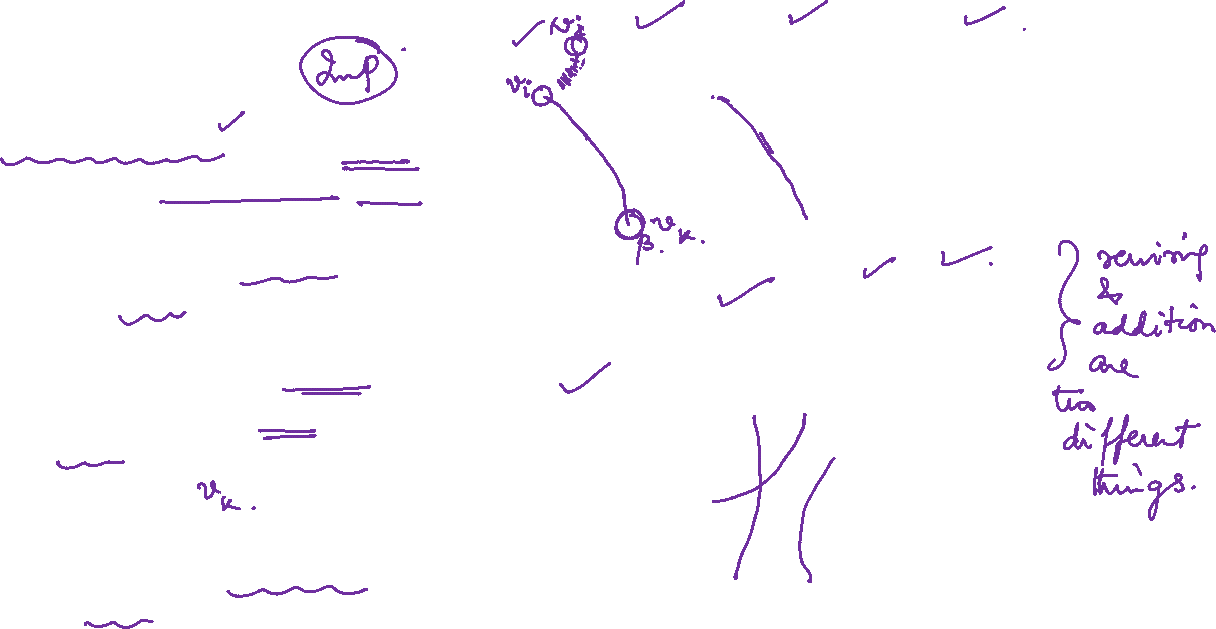 Imp
v_i
v_k.
β.
v_k.
rewiring
&
addition
are
two
different
things.